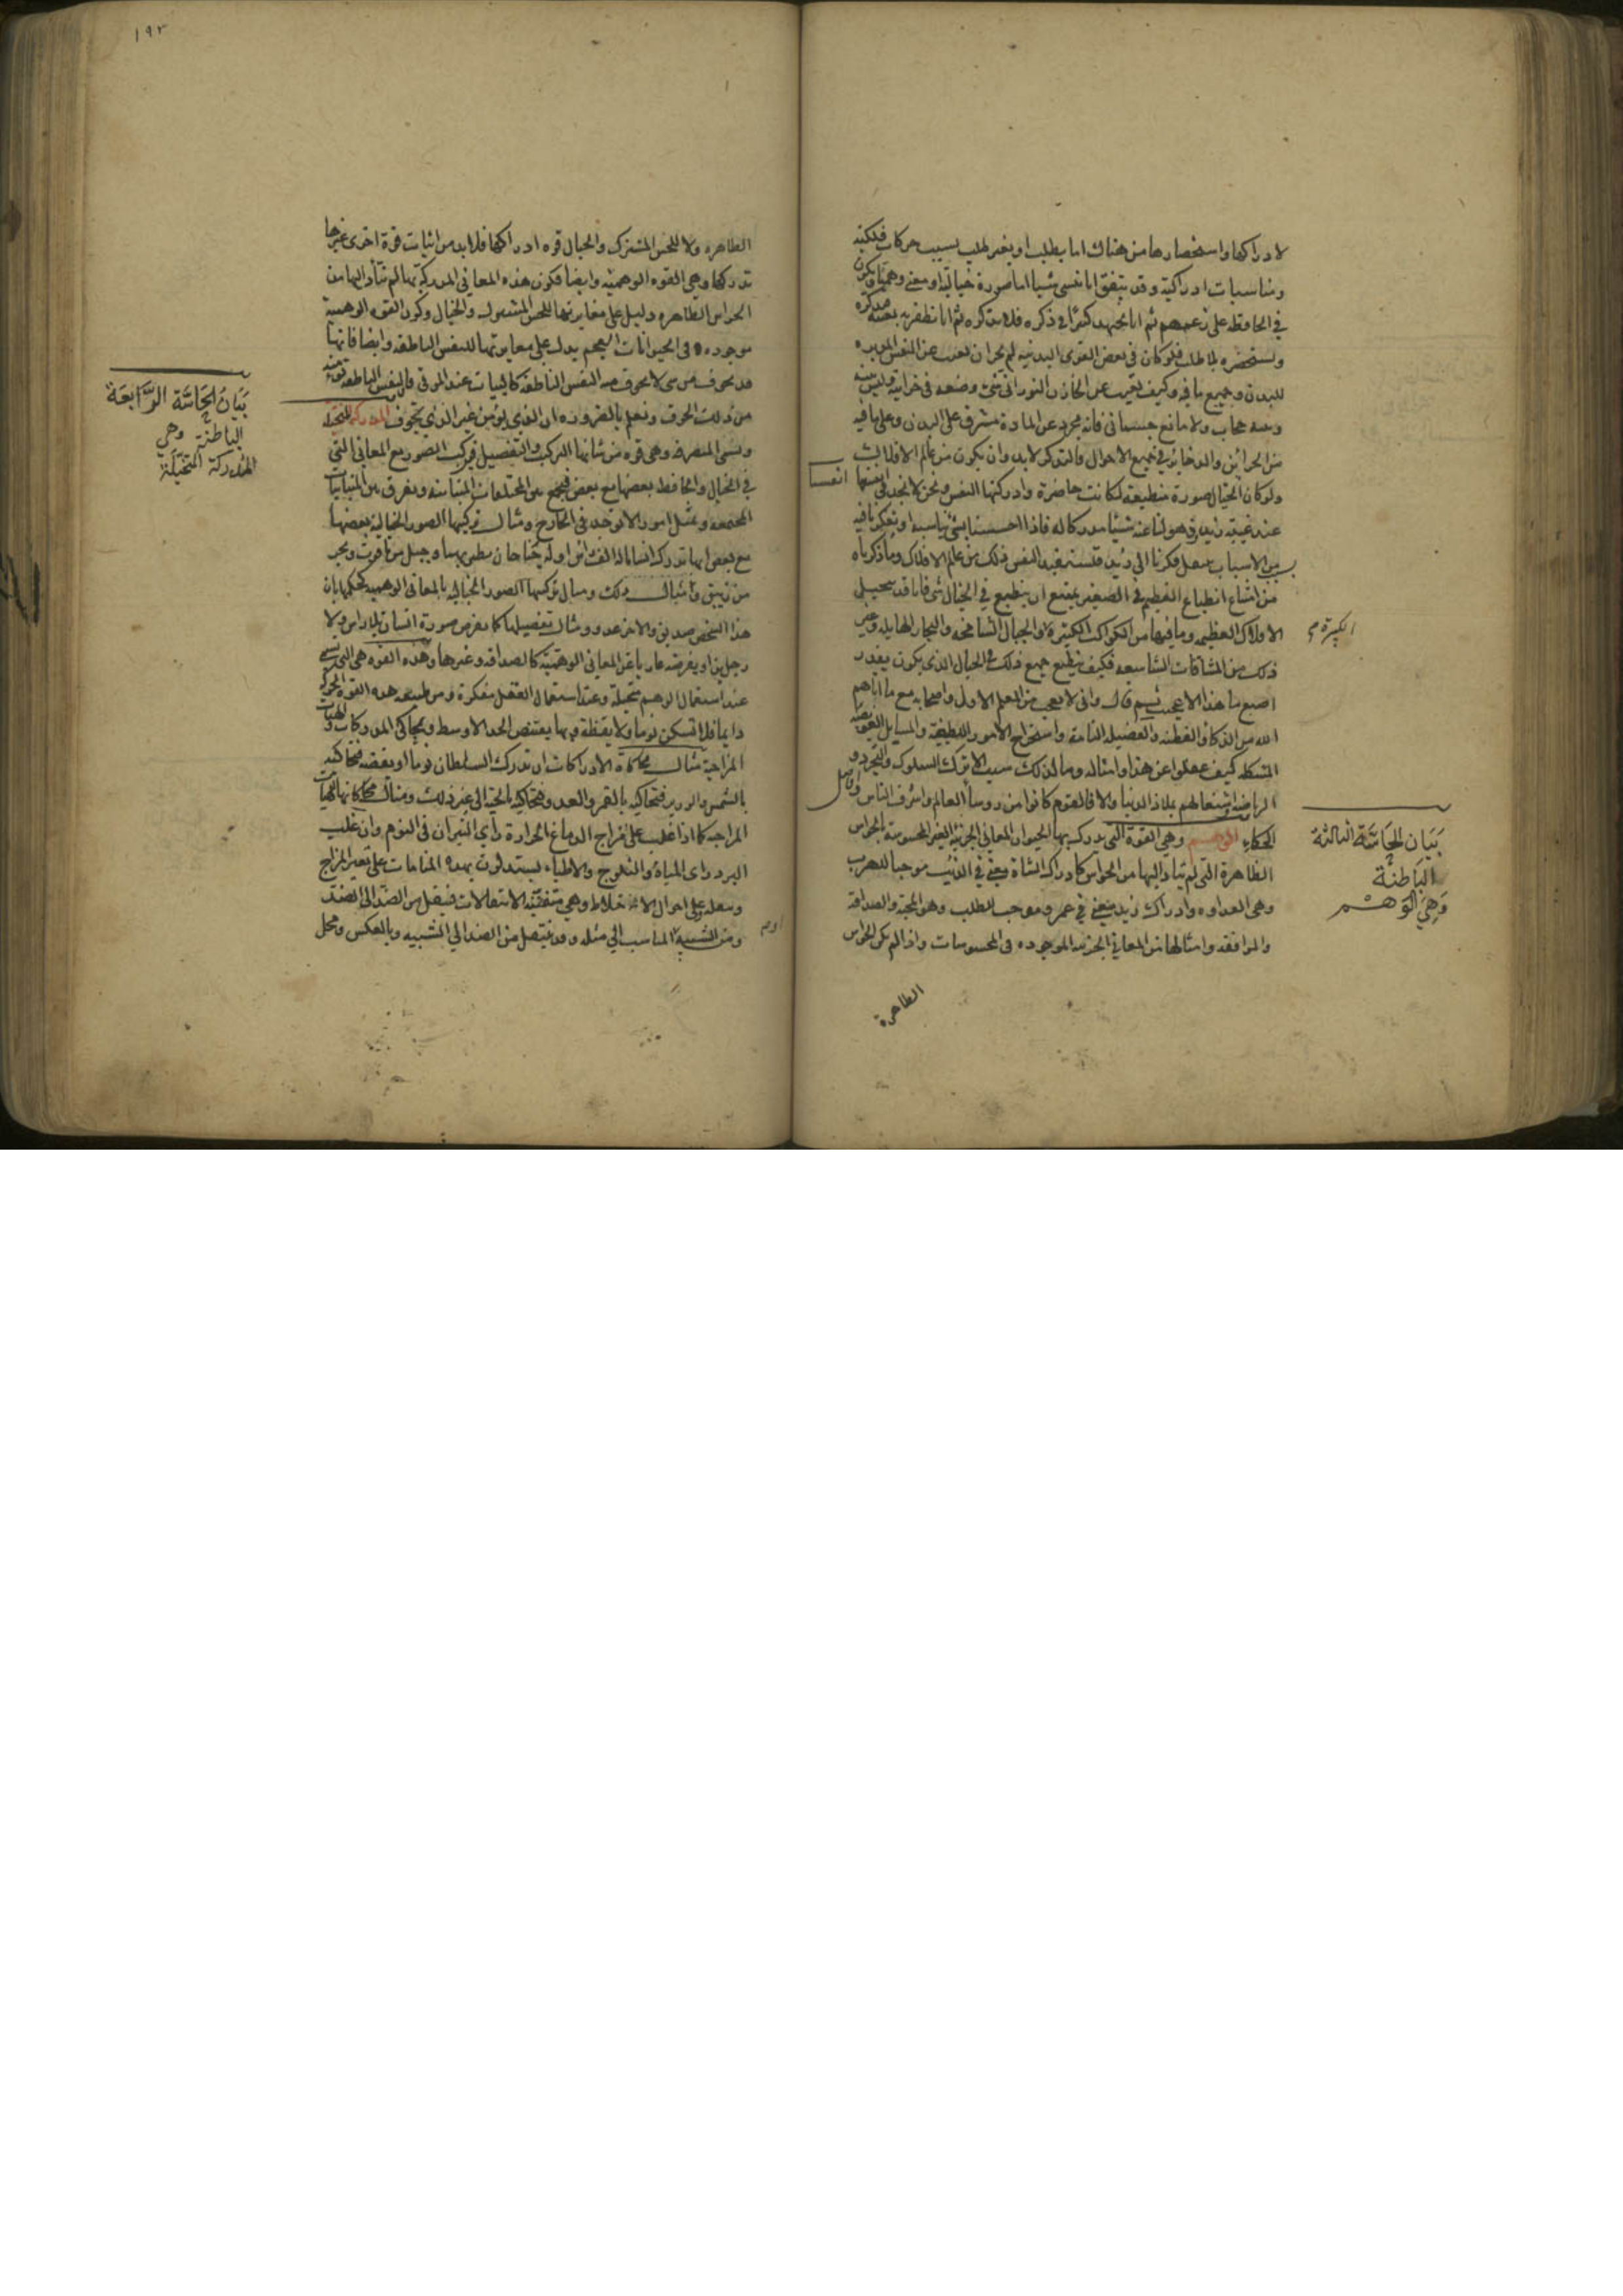 لادراكها واستحضارها من هناك اما بطلب او بغير طلب بسبب حركات فلكية
ومناسبات ادراكية وقد يتفق انا ننسى شيئا اما صورة خيالية او معنى وهميا يكون
في الحافظة على زعمهم ثم انا نجتهد كثيرا في ذكره فلا نتذكره ثم انا نظفر به بعينه
ونستحضره بلا طلب فلو كان في بعض القوى البدنية لم يجز ان يغيب عن النفس المدبره
للبدن وجميع ما فيه وكيف يغيب عن الخازن النوراني شئ وضعه في خزانته وليس بينه
وبينه حجاب ولا مانع جسماني فانه مجرد عن المادة مشرق على البدن وعلى ما فيه
من الخزاين والدخاير في جميع الاحوال فالتذكر لا بد وان يكون من عالم الافلاك
ولو كان الخيال صورة منطبعة لكانت حاضرة وادركتها النفس ونحن لا نجد في انفسنا
انفسنا
عند غيبة زيد وذهولنا عنه شيئا مدركا له فاذا احسسنا بشئ يناسبه او تفكرنا فيه
بسبب من الاسباب ينتقل فكرنا الى زيد فتستفيد النفس ذلك من عالم الافلاك وما ذكرناه
من امتناع انطباع العظيم في الصغير يمتنع ان ينطبع في الخيال شئ فانا قد نتخيل
الافلاك العظيمه وما فيها من الكواكب الكثيرة والجبال الشامخه والبحار الهايله وغير
الكبيرة
ذلك من المسافات الشاسعه فكيف ينطبع جميع ذلك في الخيال الذي يكون بقدر
اصبع ما هذا الا عجيب ثم قال واني لاعجب من المعلم الاول واصحابه مع ما اتاهم
الله من الذكاء والفطنه والفضيلة التامة واستخراج الامور اللطيفة والمسايل العويصه
المشكله كيف غفلوا عن هذا وامثاله وما لذلك سبب الا ترك السلوك والتجرد و
الرياضة واشتغالهم بملاذ الدنيا والا فالقوم كانوا من روسا العالم واشرف الناس وافاضل
الحكماء الوهم وهي القوة التي يدرك بها الحيوان المعاني الجزئية الغير المحسوسة بالحواس
بيان الحاسة الثالثة
الباطنة
وهي الوهم
الظاهرة التي لم يتاد اليها من الحواس كادراك الشاة معنى في الذئب موجبا للهرب
وهي العداوه وادراك زيد معنى في عمرو موجب للطلب وهو المحبة والصداقة
والموافقه وامثالها من المعاني الجزئيه الموجوده في المحسوسات واذا لم يكن للحواس
الظاهرة
١٩٣
الظاهره ولا للحس المشترك والخيال قوه ادراكها فلا بد من اثبات قوة اخرى غيرها
تدركها وهي القوه الوهميه وايضا فكون هذه المعاني المدركة بها لم تتاد اليها من
الحواس الظاهره دليل على مغايرتها للحس المشترك والخيال وكون القوه الوهمية
موجوده في الحيوانات العجم يدل على مغايرتها للنفس الناطقه وايضا فانها
قد تخوف من شئ لا تخوف منه النفس الناطقة كالمبيت عند الموتى فان النفس الناطقه تؤمنه
من ذلك الخوف ونعلم بالضروره ان الذي يؤمن غير الذي يخوف المدركة المتخيلة
بيان الحاسة الرابعة
الباطنة وهي
المدركة المتخيلة
وتسمى المتصرفه وهي قوه من شانها التركيب والتفصيل فتركب الصور مع المعاني التي
في الخيال والحافظه بعضها مع بعض فتجمع بين المختلفات المتباينة وتفرق بين المتباينات
المجتمعه وتمثل امورا لا توجد في الخارج ومثال تركيبها الصور الخيالية بعضها
مع بعض انها تدرك انسانا له الف راس او له جناحان يطير بهما وجبل من ياقوت وبحر
من زيبق وامثال ذلك ومثال تركيبها الصور الخياليه بالمعاني الوهميه كحكمها بان
هذا الشخص صديق والاخر عدو ومثال تفصيلها كما نفرض صورة انسان بلا راس ولا
رجلين او نفرضه عاريا عن المعاني الوهمية كالصداقه وغيرها وهذه القوه هي التي تسمى
عند استعمال الوهم متخيلة وعند استعمال العقل مفكرة ومن طبيعه هذه القوه الحركة
دايما فلا تسكن نوما ولا يقظة وبها يقتنص الحد الاوسط وتحاكي المدركات والهيئات
المزاجية مثال محاكاة الادراكات ان تدرك السلطان نوما او يقظه فتحاكيه
بالشمس والوزير فتحاكيه بالقمر والعدو فتحاكيه بالحية الى غير ذلك ومثال محاكاتها الهيئات
المزاجيه كما اذا غلب على مزاج الدماغ الحرارة راى النيران في النوم وان غلب
البرد راى المياه والثلوج والاطباء يستدلون بهذه المنامات على تغير المزاج
وعلى احوال الاخلاط وهي متفننة الانتقالات فتنتقل من الضد الى الضد
ومن الشبيه المناسب الى مثله وقد ينتقل من الضد الى الشبيه وبالعكس ومحل